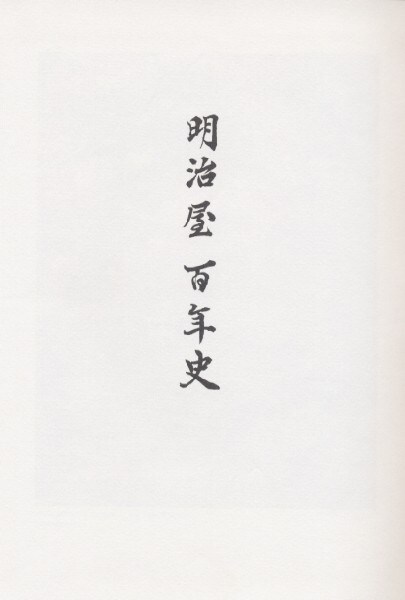 明治屋 百年史